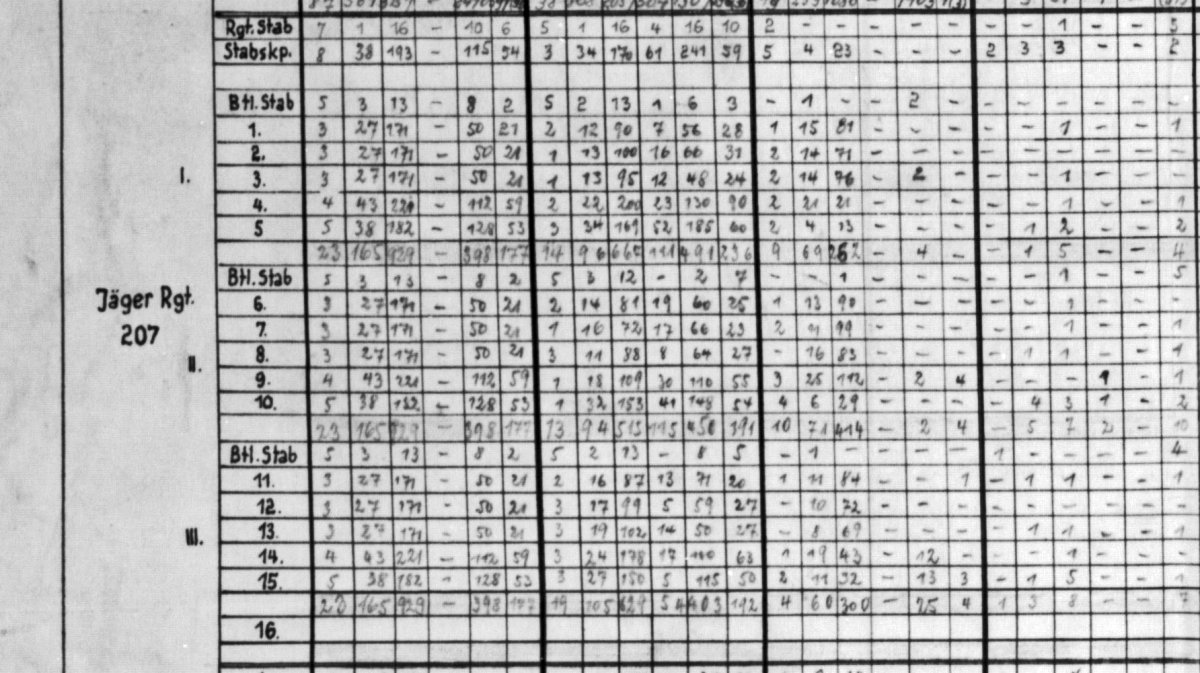 Rgt. Stab 7 1 16 - 10 6 5 1 16 4 16 10 2 - - - - - - - 1 - - 5
Stabskp. 8 38 193 - 115 54 3 34 170 61 241 59 5 4 23 - - - 2 3 3 - - 2
Btl. Stab 5 3 13 - 8 2 5 2 13 1 6 3 - 1 - - 2 - - - - - - -
1. 3 27 171 - 50 21 2 12 90 7 56 28 1 15 81 - - - - - 1 - - 1
2. 3 27 171 - 50 21 1 13 100 16 60 31 2 14 71 - - - - - - - - -
I. 3. 3 27 171 - 50 21 1 13 95 12 48 24 2 14 76 - 2 - - - 1 - -
4. 4 43 221 - 112 59 2 22 200 23 130 90 2 21 21 - - - - - 1 - - 1
5 5 38 182 - 128 53 3 34 169 52 185 60 2 4 13 - - - - 1 2 - - 2
23 165 929 - 398 177 14 96 667 111 491 236 9 69 262 - 4 - - 1 5 - - 4
Btl. Stab 5 3 13 - 8 2 5 3 12 - 2 7 - - 1 - - - - - 1 - - 5
Jäger Rgt. 6. 3 27 171 - 50 21 2 14 81 19 60 25 1 13 90 - - - - - 1 - -
207 7. 3 27 171 - 50 21 1 16 72 17 66 23 2 11 99 - - - - - 1 - - 1
8. 3 27 171 - 50 21 3 11 88 8 64 27 - 16 83 - - - - 1 1 - - 1
II. 9. 4 43 221 - 112 59 1 18 109 30 110 55 3 25 112 - 2 4 - - - 1 - 1
10. 5 38 182 - 128 53 1 32 153 41 148 54 4 6 29 - - - - 4 3 1 - 2
23 165 929 - 398 177 13 94 515 115 450 191 10 71 414 - 2 4 - 5 7 2 - 10
Btl. Stab 5 3 13 - 8 2 5 2 13 - 8 5 - 1 - - - - 1 - - - - 4
11. 3 27 171 - 50 21 2 16 87 13 71 20 1 11 84 - - 1 - 1 1 - - 1
12. 3 27 171 - 50 21 3 17 99 5 59 27 - 10 72 - - - - - - - - -
III. 13. 3 27 171 - 50 21 3 19 102 14 50 27 - 8 69 - - - - 1 1 - - 1
14. 4 43 221 - 112 59 3 24 178 17 110 63 1 19 43 - 12 - - 1 - -
15. 5 38 182 - 128 53 3 27 150 5 115 50 2 11 32 - 13 3 - 1 5 - - 1
23 165 929 - 398 177 19 105 629 54 403 192 4 60 300 - 25 4 1 3 8 - - 7
16.